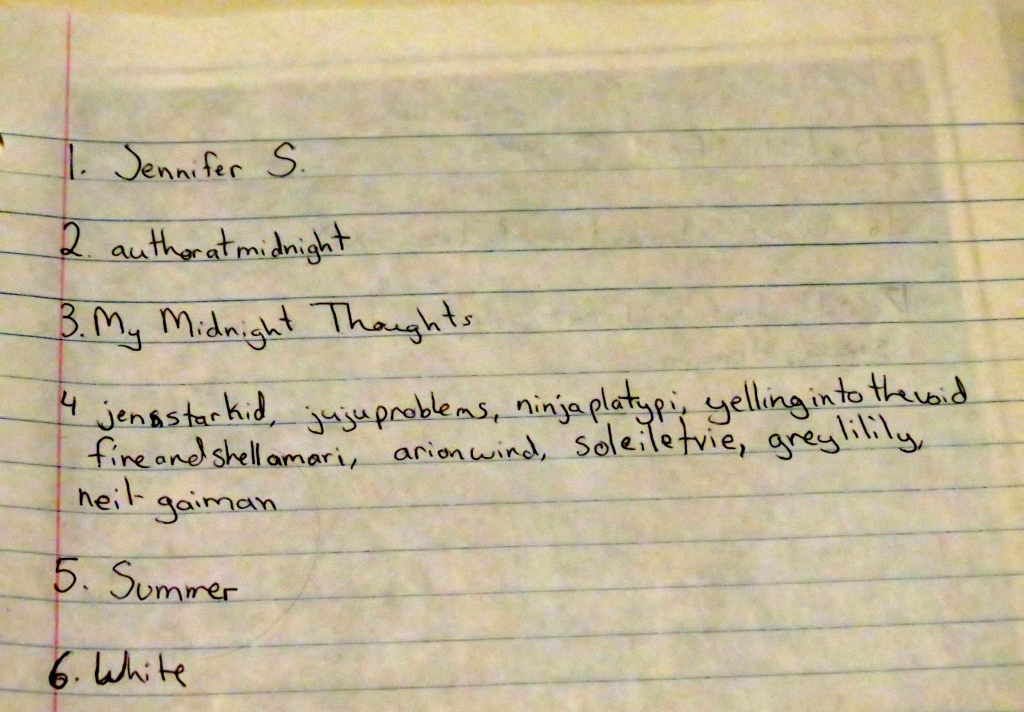 1. Jennifer S.
2. authoratmidnight
3. My Midnight Thoughts
4 jensstarkid, jujuproblems, ninjaplatypi, yellingintothevoid
fineandshellamari, arionwind, soleiletvie, greylilily,
neil-gaiman
5. Summer
6. White